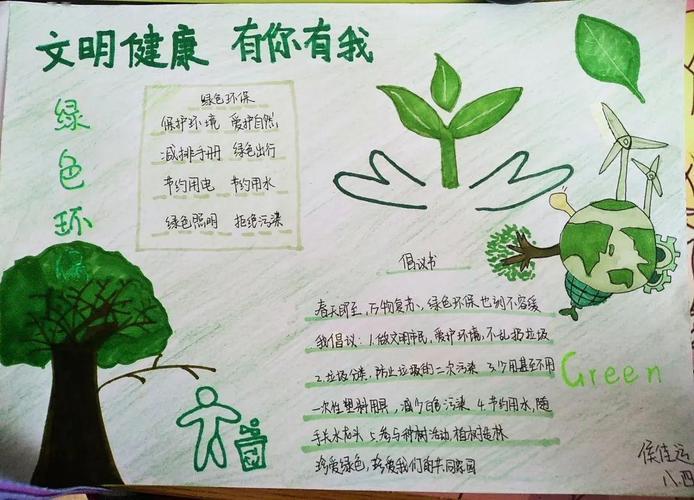 文明健康 有你有我
绿色环保
绿色环保
保护环境 爱护自然
减排手册 绿色出行
节约用电 节约用水
绿色照明 拒绝污染
倡议书
春天即至,万物复苏、绿色环保也刻不容缓
我倡议:1.做文明市民,爱护环境,不乱扔垃圾
2.垃圾分类,防止垃圾的二次污染 3.少用甚至不用
一次性塑料用具,减少白色污染 4.节约用水,随
手关水龙头 5.参与种树活动植树造林
珍爱绿色,珍爱我们的共同家园
Green
侯佳运
八.四